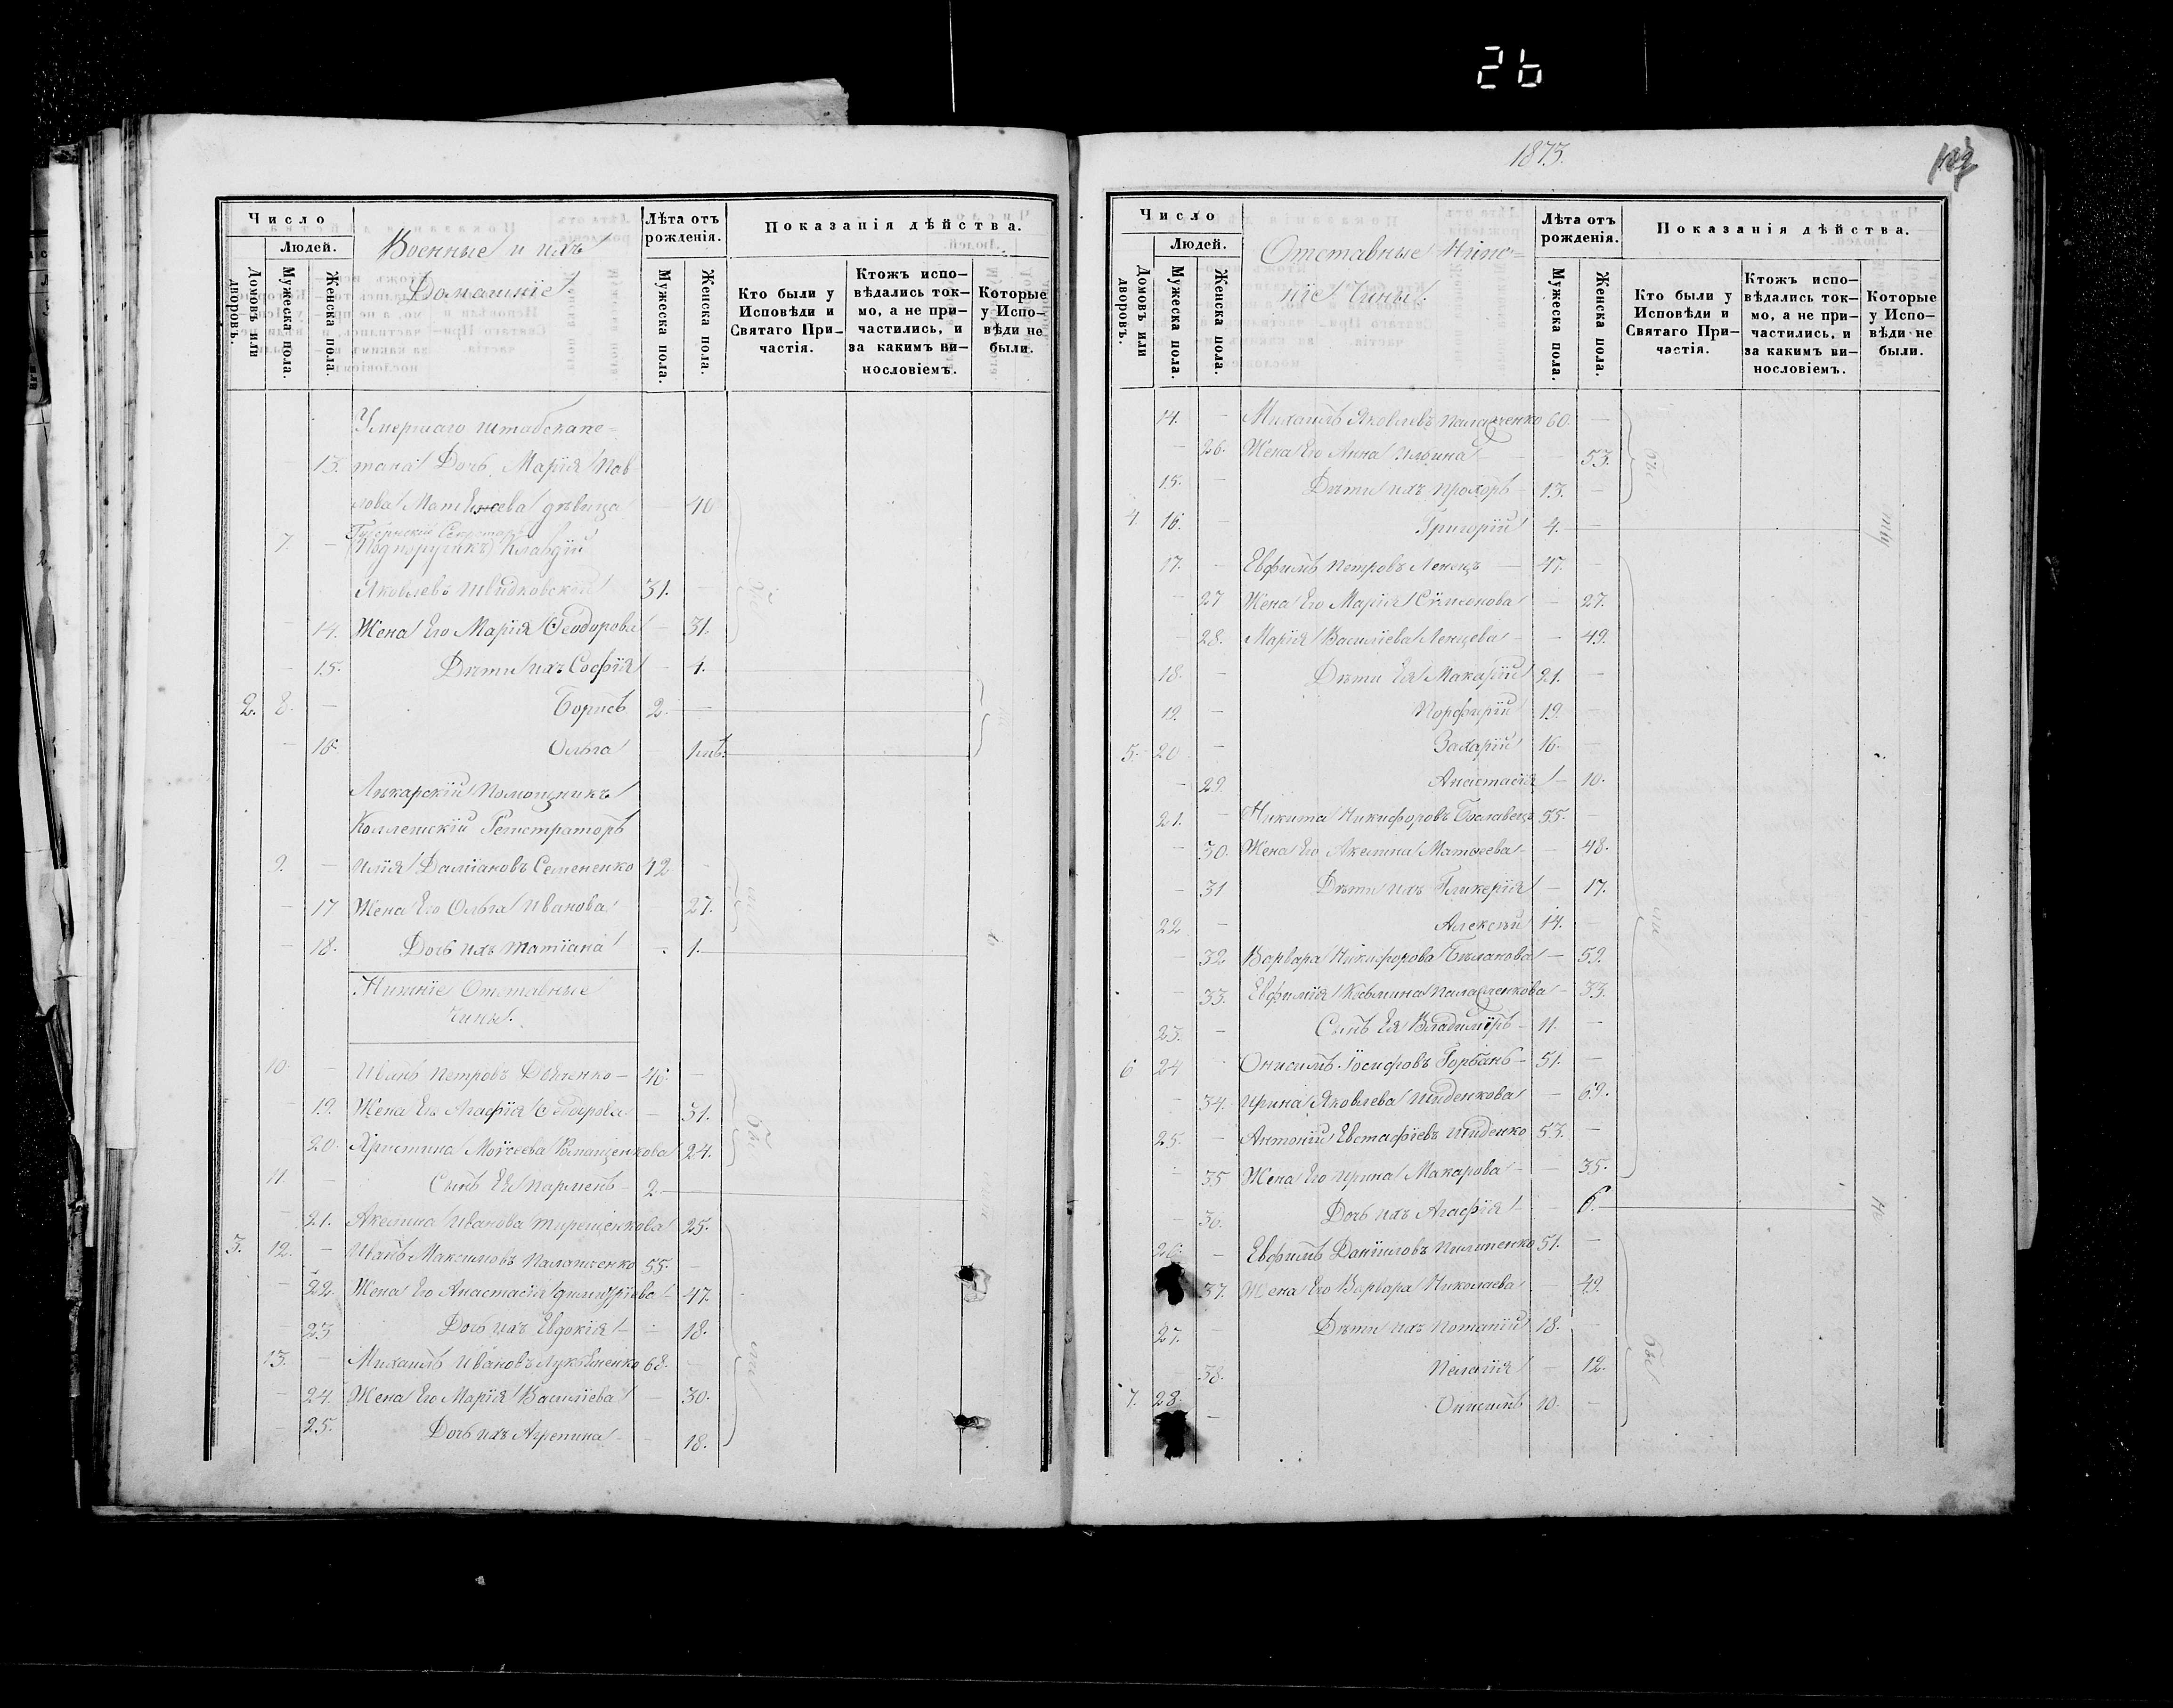 26
Число
Людей.
Домовъ или дворовъ.
Мужеска пола.
Женска пола.
Военные и ихъ
Домашніе
Лѣта отъ рожденія.
Мужеска пола.
Женска пола.
Показанія дѣйства.
Кто были у Исповѣди и Святаго Причастія.
Ктожъ исповѣдались токмо, а не причастились, и за какимъ винословіемъ.
Которые у Исповѣди не были.
Умершаго штабскапи=
13. тана Дочь Марія Пав
лова Матвѣева дѣвица 40
Губернскій Секретарь
7. — (Подпоручикъ) Клавдій
Яковлевъ Швидковскій 31.
14. Жена Его Марія Ѳеодорова — 31.
15. Дѣти ихъ Софія — 4.
2. 8. — Борисъ 2. —
16. Ольга — 1мѣ.
Лѣкарскій Помощникъ
Коллежскій Регистраторъ
9. — Илія Даміановъ Семененко 42 —
17 Жена Его Ольга Иванова 27.
18. Дочь ихъ Татіана 1.
Нижніе Отставные
чины.
10. — Иванъ Петровъ — 46. —
19. Жена Его Агафія Ѳеодорова — 31.
20. Христина Моисеева 24.
11. — Сынъ Ея Парменъ 2. —
21. Акелина Иванова Терещенкова 25.
3. 12. — Иванъ Максимовъ Палащенко 55. —
22. Жена Его Анастасія Димитріева — 47.
23 Дочь ихъ Евдокія — 18.
13. — Михаилъ Ивановъ Лукьяненко 68. —
24. Жена Его Марія Василіева — 30.
25. Дочь ихъ Агрепина — 18.
1873.
Число
Людей.
Домовъ или дворовъ.
Мужеска пола.
Женска пола.
Отставные Ниж=
ніе Чины.
Лѣта отъ рожденія.
Мужеска пола.
Женска пола.
Показанія дѣйства.
Кто были у Исповѣди и Святаго Причастія.
Ктожъ исповѣдались токмо, а не причастились, и за какимъ винословіемъ.
Которые у Исповѣди не были.
14. — Михаилъ Яковлевъ Палащенко 60. —
26. Жена Его Анна Ильина — 53.
15. — Дѣти ихъ Прохоръ 13. —
4 16. — Григорій 4. —
17. — Евфимъ Петровъ Ленецъ 47. —
27 Жена Его Марія Симонова — 27.
28. Марія Василіева Ленцева — 49.
18. — Дѣти Ея Макарій 21. —
19. — Порфирій 19. —
5. 20 — Захарій 16. —
29. Анастасія — 10.
21. — Никита Никифоровъ 55. —
30. Жена Его Акелина Матвеева — 48.
31 Дѣти ихъ Гликерія — 17.
22 — Алексѣй 14. —
32 Варвара Никифорова — 59.
33. Евфимія Косьмина Палащенкова — 33.
23. — Сынъ Ея Владиміръ 11. —
6 24 — Онисимъ Іосифовъ Горбань 51. —
34. Ирина Яковлева Шиденкова — 69.
25. — Антоній Евстафіевъ Шиденко 53. —
35 Жена Его Ирина Макарова — 35.
36. Дочь ихъ Агафія — 6.
26. — Евфимъ Даніиловъ Пилипенко 51. —
37. Жена Его Варвара Николаева — 49.
27. — Дѣти ихъ Потапій 18. —
38. Пелагія — 12.
7. 28. — Онисимъ 10. —